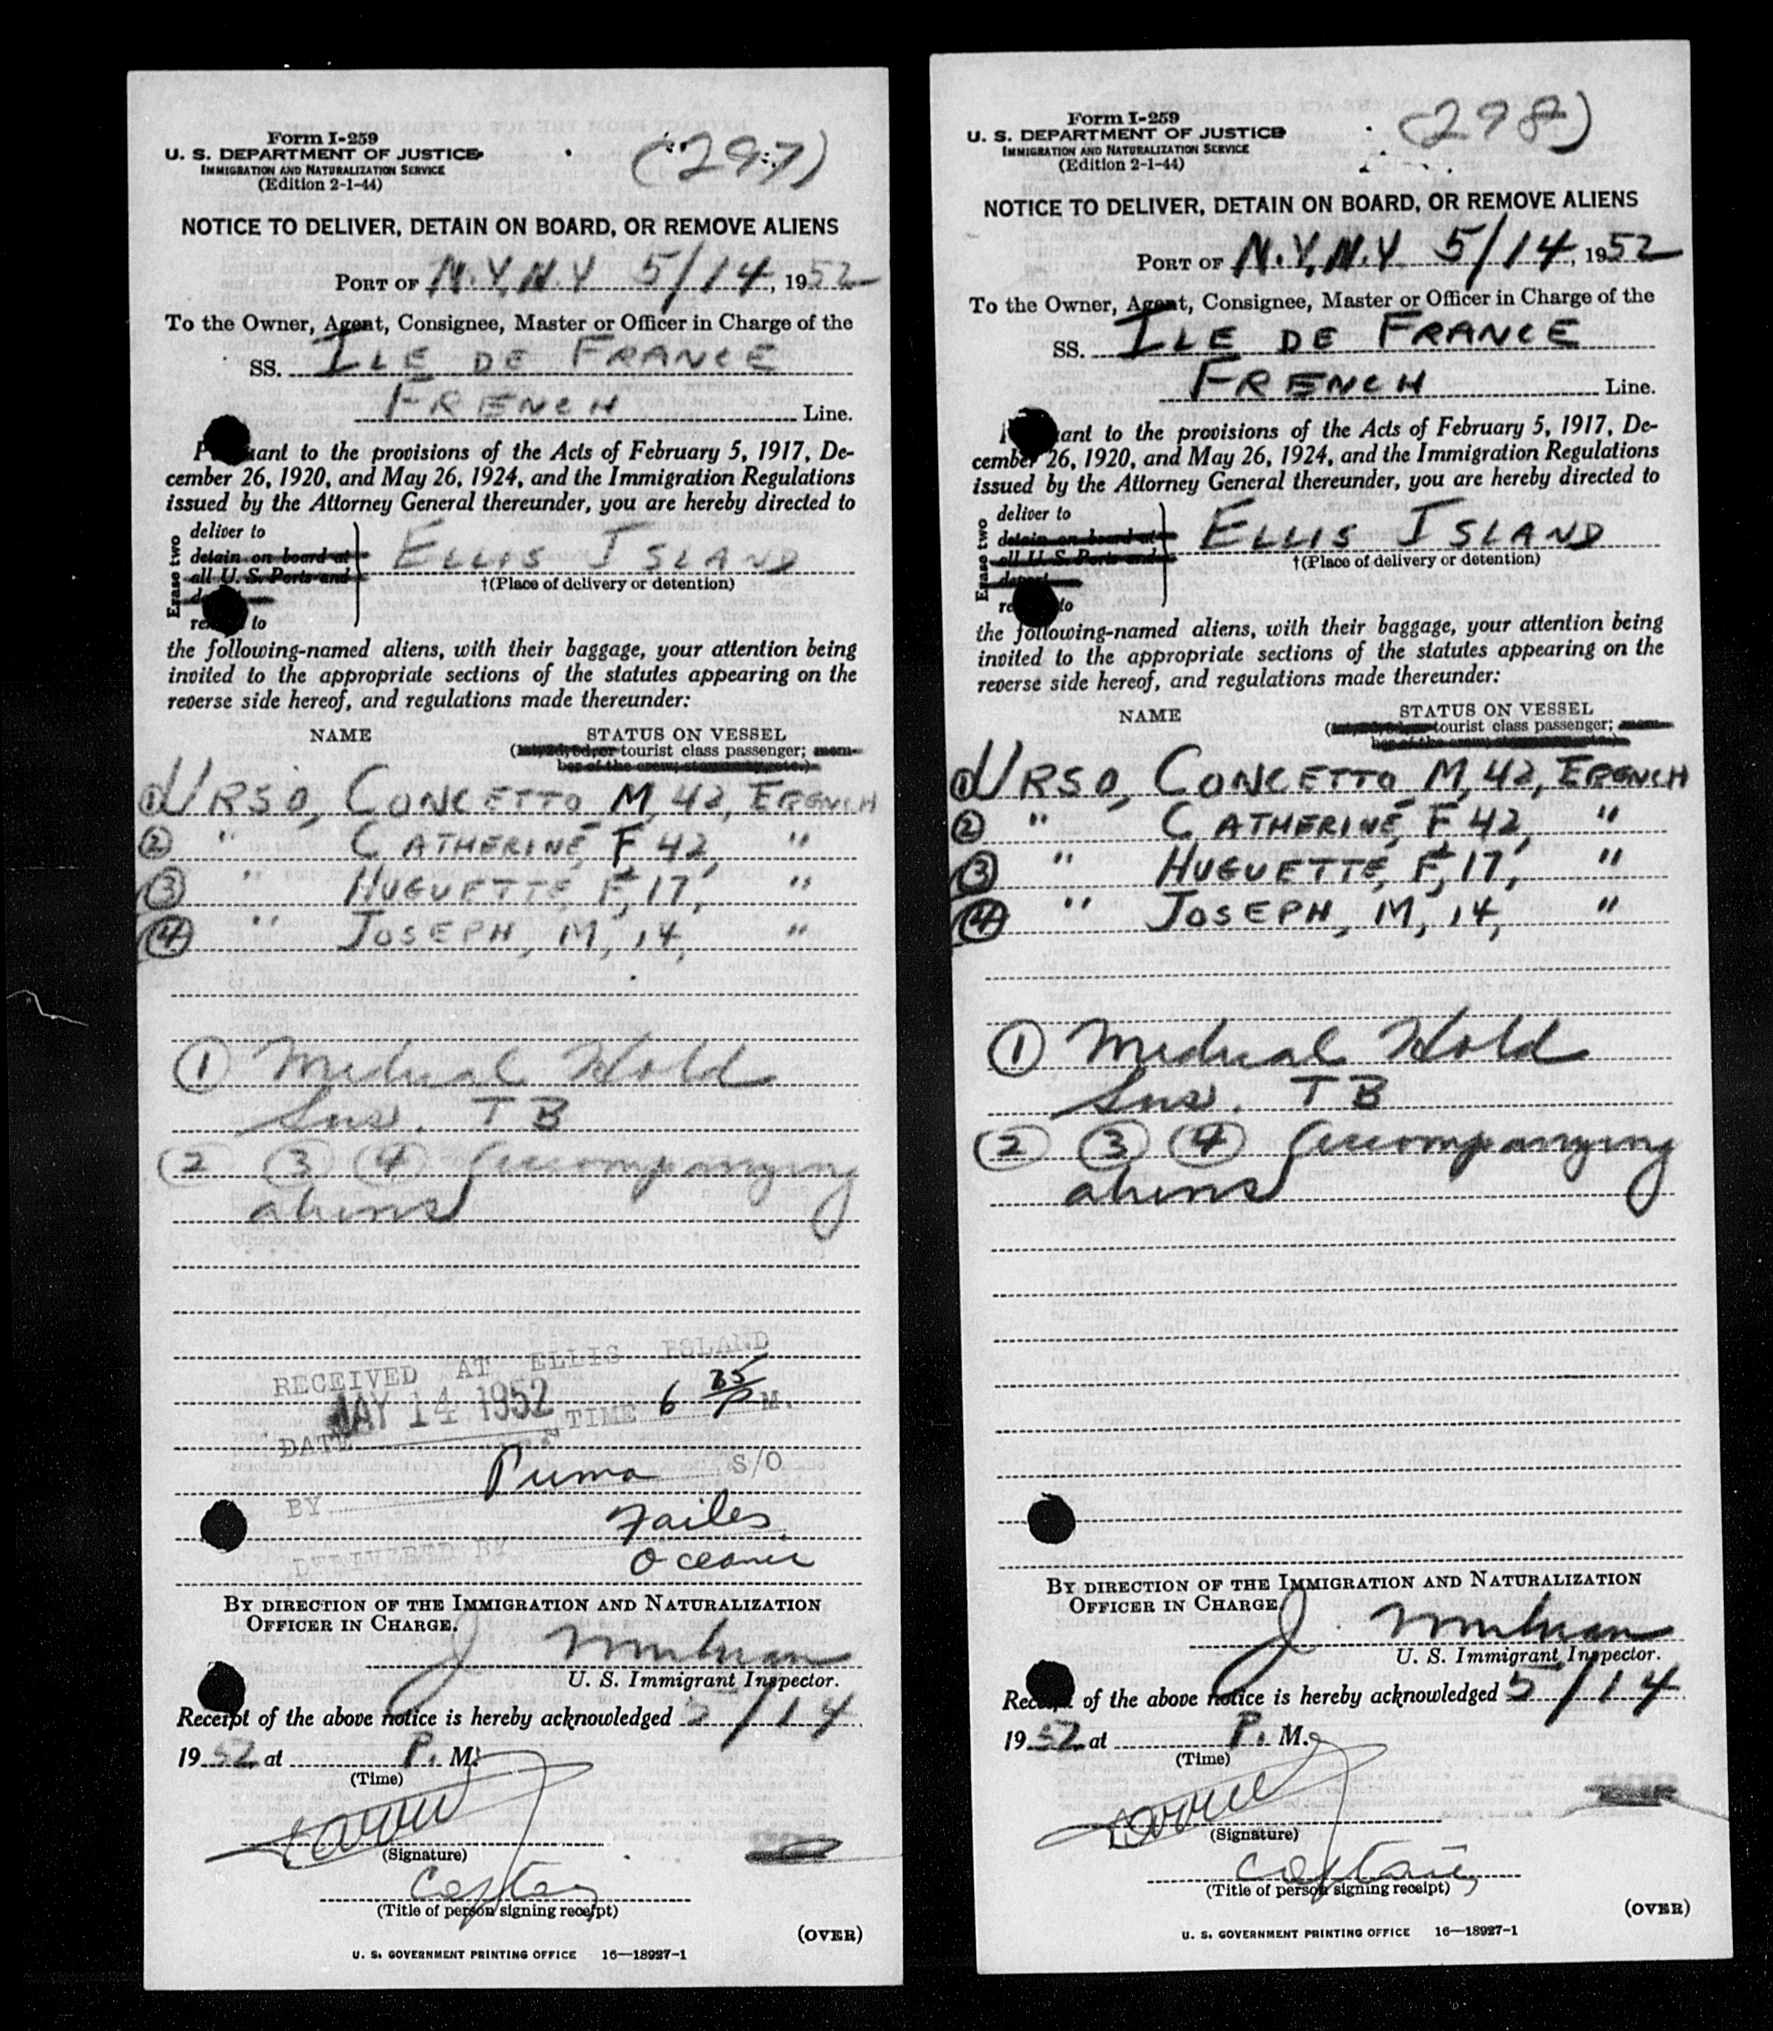 Form I-259
U. S. DEPARTMENT OF JUSTICE
IMMIGRATION AND NATURALIZATION SERVICE
(Edition 2-1-44)
(297)
NOTICE TO DELIVER, DETAIN ON BOARD, OR REMOVE ALIENS
PORT OF N.Y, N.Y 5/14, 1952
To the Owner, Agent, Consignee, Master or Officer in Charge of the
SS. ILE DE FRANCE
FRENCH Line.
P uant to the provisions of the Acts of February 5, 1917, De-
cember 26, 1920, and May 26, 1924, and the Immigration Regulations
issued by the Attorney General thereunder, you are hereby directed to
Erase two
deliver to
detain on board at
all U. S. Ports and
ELLIS ISLAND
†(Place of delivery or detention)
to
the following-named aliens, with their baggage, your attention being
invited to the appropriate sections of the statutes appearing on the
reverse side hereof, and regulations made thereunder:
NAME
STATUS ON VESSEL
(1st, 2d, 3d, or tourist class passenger; mem-
ber of the crew; stowaway, etc.)
① URSO, CONCETTO M, 42, FRENCH
② " CATHERINE, F, 42, "
③ " HUGUETTE, F, 17, "
④ " JOSEPH, M, 14, "
① Medical Hold
Sus. TB
② ③ ④ Accompanying
aliens
RECEIVED AT ELLIS ISLAND
DATE MAY 14 1952 TIME 6 35 P M.
BY Puma S/O
DELIVERED BY Failes
Oceanic
BY DIRECTION OF THE IMMIGRATION AND NATURALIZATION
OFFICER IN CHARGE.
J
U. S. Immigrant Inspector.
Receipt of the above notice is hereby acknowledged 5/14
1952 at P. M.
(Time)
(Signature)
Captain
(Title of person signing receipt)
(OVER)
U. S. GOVERNMENT PRINTING OFFICE 16—18927-1
Form I-259
U. S. DEPARTMENT OF JUSTICE
IMMIGRATION AND NATURALIZATION SERVICE
(Edition 2-1-44)
(298)
NOTICE TO DELIVER, DETAIN ON BOARD, OR REMOVE ALIENS
PORT OF N.Y, N.Y 5/14, 1952
To the Owner, Agent, Consignee, Master or Officer in Charge of the
SS. ILE DE FRANCE
FRENCH Line.
uant to the provisions of the Acts of February 5, 1917, De-
cember 26, 1920, and May 26, 1924, and the Immigration Regulations
issued by the Attorney General thereunder, you are hereby directed to
Erase two
deliver to
detain on board at
all U. S. Ports and
deport
ELLIS ISLAND
†(Place of delivery or detention)
to
the following-named aliens, with their baggage, your attention being
invited to the appropriate sections of the statutes appearing on the
reverse side hereof, and regulations made thereunder:
NAME
STATUS ON VESSEL
(1st, 2d, 3d, or tourist class passenger; mem-
ber of the crew; stowaway, etc.)
① URSO, CONCETTO M, 42, FRENCH
② " CATHERINE, F, 42, "
③ " HUGUETTE, F, 17, "
④ " JOSEPH, M, 14, "
① Medical Hold
Sus. TB
② ③ ④ Accompanying
aliens
BY DIRECTION OF THE IMMIGRATION AND NATURALIZATION
OFFICER IN CHARGE.
J.
U. S. Immigrant Inspector.
Receipt of the above notice is hereby acknowledged 5/14
1952 at P. M.
(Time)
(Signature)
Captain
(Title of person signing receipt)
(OVER)
U. S. GOVERNMENT PRINTING OFFICE 16—18927-1